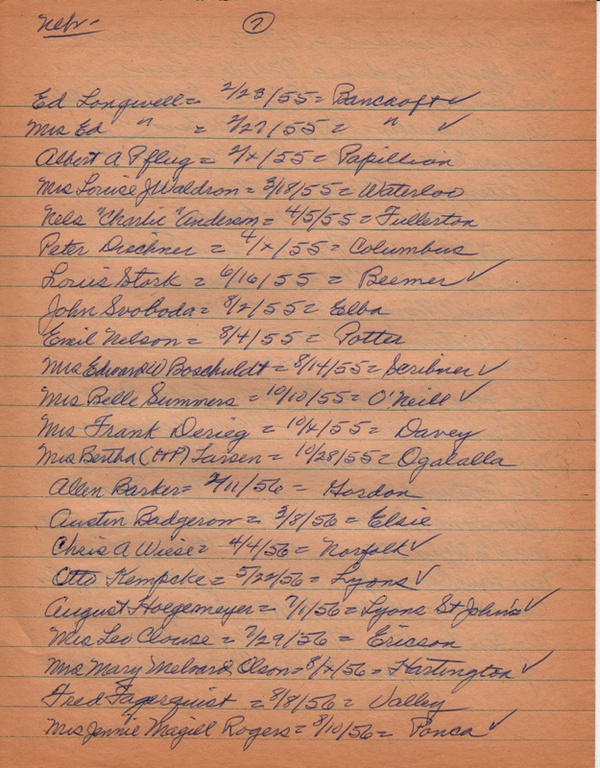 Nebr- 7
Ed Longwell = 2/28/55 = Bancroft ✓
Mrs Ed " = 2/27/55 = " ✓
Albert A Pflug = 2/x/55 = Papillion
Mrs Louise J Waldron = 3/18/55 = Waterloo
Nels "Charlie" Anderson = 4/5/55 = Fullerton
Peter Dischner = 4/x/55 = Columbus
Louis Stork = 6/16/55 = Beemer ✓
John Svoboda = 8/2/55 = Elba
Emil Nelson = 8/4/55 = Potter
Mrs Edward W Boschuldt = 8/14/55 = Scribner ✓
Mrs Belle Summers = 10/10/55 = O'Neill ✓
Mrs Frank Derieg = 10/x/55 = Davey
Mrs Bertha (HP) Larsen = 10/28/55 = Ogalalla
Allen Barker = 2/11/56 = Gordon
Austin Badgerow = 3/8/56 = Elsie
Chris A Wiese = 4/4/56 = Norfolk ✓
Otto Kempcke = 5/22/56 = Lyons ✓
August Hoegemeyer = 7/1/56 = Lyons St John's ✓
Mrs Leo Clouse = 7/29/56 = Ericson
Mrs Mary Olson = 8/x/56 = Hartington ✓
Fred Fagerquist = 8/8/56 = Valley
Mrs Jennie Magill Rogers = 8/10/56 = Ponca ✓